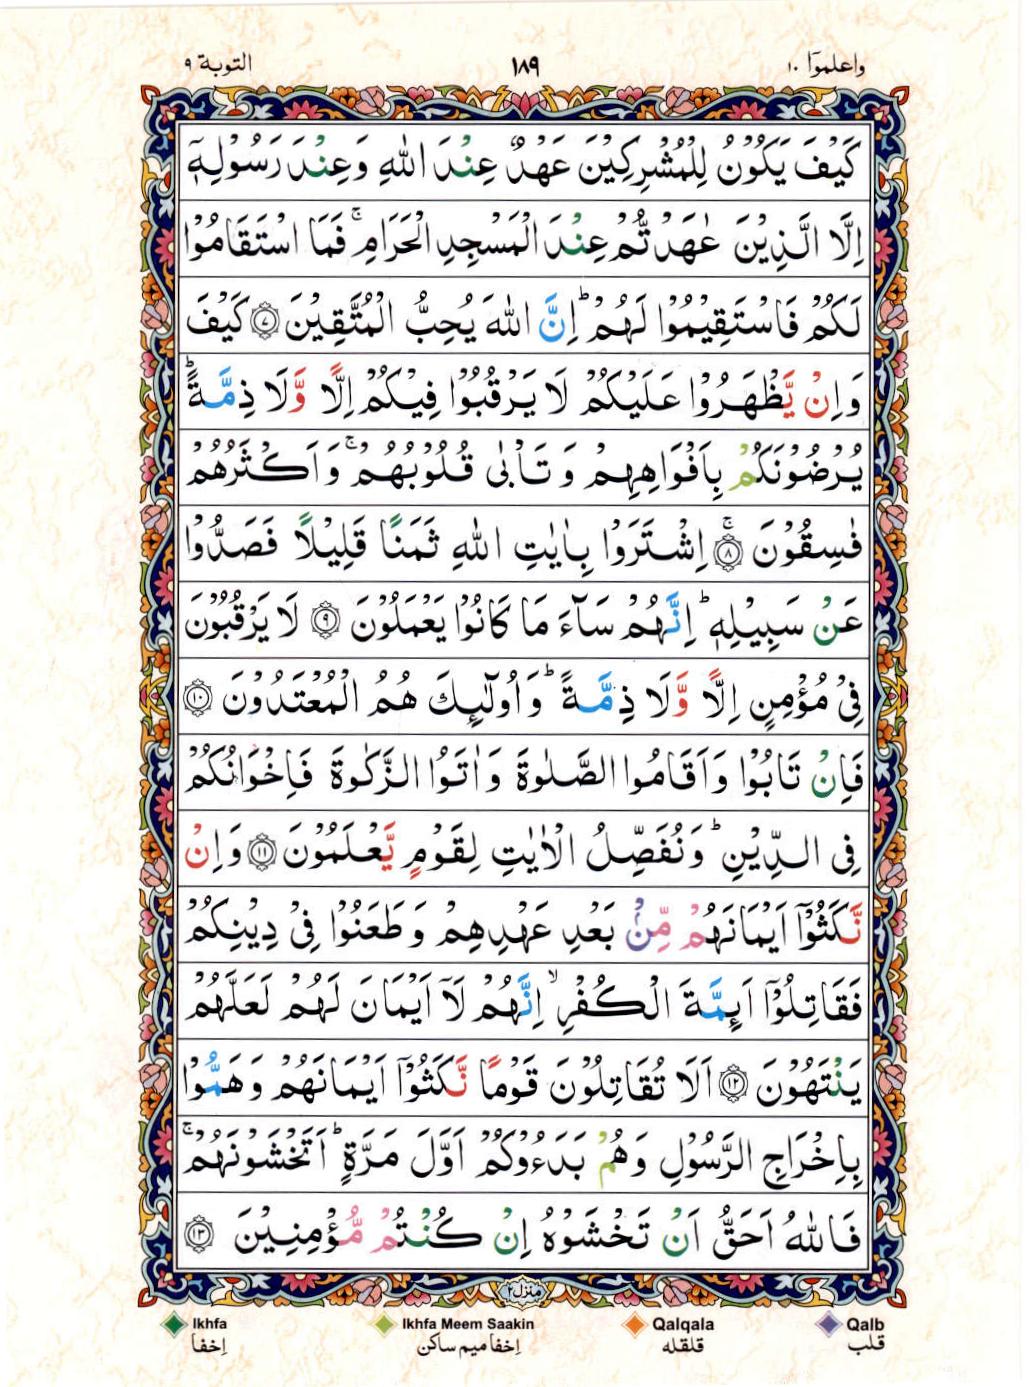 واعلموآ ١٠
١٨٩
التوبة ٩
كَيْفَ يَكُوْنُ لِلْمُشْرِكِيْنَ عَهْدٌ عِنْدَ اللّٰهِ وَعِنْدَ رَسُوْلِهٖٓ
اِلَّا الَّذِيْنَ عٰهَدْتُّمْ عِنْدَ الْمَسْجِدِ الْحَرَامِ ۚ فَمَا اسْتَقَامُوْا
لَكُمْ فَاسْتَقِيْمُوْا لَهُمْ ؕ اِنَّ اللّٰهَ يُحِبُّ الْمُتَّقِيْنَ ۝٧ كَيْفَ
وَاِنْ يَّظْهَرُوْا عَلَيْكُمْ لَا يَرْقُبُوْا فِيْكُمْ اِلًّا وَّلَا ذِمَّةً ؕ
يُرْضُوْنَكُمْ بِاَفْوَاهِهِمْ وَتَاْبٰى قُلُوْبُهُمْ ۚ وَاَكْثَرُهُمْ
فٰسِقُوْنَ ۝٨ ۚ اِشْتَرَوْا بِاٰيٰتِ اللّٰهِ ثَمَنًا قَلِيْلًا فَصَدُّوْا
عَنْ سَبِيْلِهٖ ؕ اِنَّهُمْ سَآءَ مَا كَانُوْا يَعْمَلُوْنَ ۝٩ لَا يَرْقُبُوْنَ
فِيْ مُؤْمِنٍ اِلًّا وَّلَا ذِمَّةً ؕ وَاُولٰٓئِكَ هُمُ الْمُعْتَدُوْنَ ۝١٠
فَاِنْ تَابُوْا وَاَقَامُوا الصَّلٰوةَ وَاٰتَوُا الزَّكٰوةَ فَاِخْوَانُكُمْ
فِى الدِّيْنِ ؕ وَنُفَصِّلُ الْاٰيٰتِ لِقَوْمٍ يَّعْلَمُوْنَ ۝١١ وَاِنْ
نَّكَثُوْٓا اَيْمَانَهُمْ مِّنْۢ بَعْدِ عَهْدِهِمْ وَطَعَنُوْا فِيْ دِيْنِكُمْ
فَقَاتِلُوْٓا اَئِمَّةَ الْكُفْرِ ۙ اِنَّهُمْ لَآ اَيْمَانَ لَهُمْ لَعَلَّهُمْ
يَنْتَهُوْنَ ۝١٢ اَلَا تُقَاتِلُوْنَ قَوْمًا نَّكَثُوْٓا اَيْمَانَهُمْ وَهَمُّوْا
بِاِخْرَاجِ الرَّسُوْلِ وَهُمْ بَدَءُوْكُمْ اَوَّلَ مَرَّةٍ ؕ اَتَخْشَوْنَهُمْ ۚ
فَاللّٰهُ اَحَقُّ اَنْ تَخْشَوْهُ اِنْ كُنْتُمْ مُّؤْمِنِيْنَ ۝١٣
منزل ٢
Ikhfa Ikhfa Meem Saakin Qalqala Qalb
اِخفا اِخفا ميم ساكن قلقله قلب